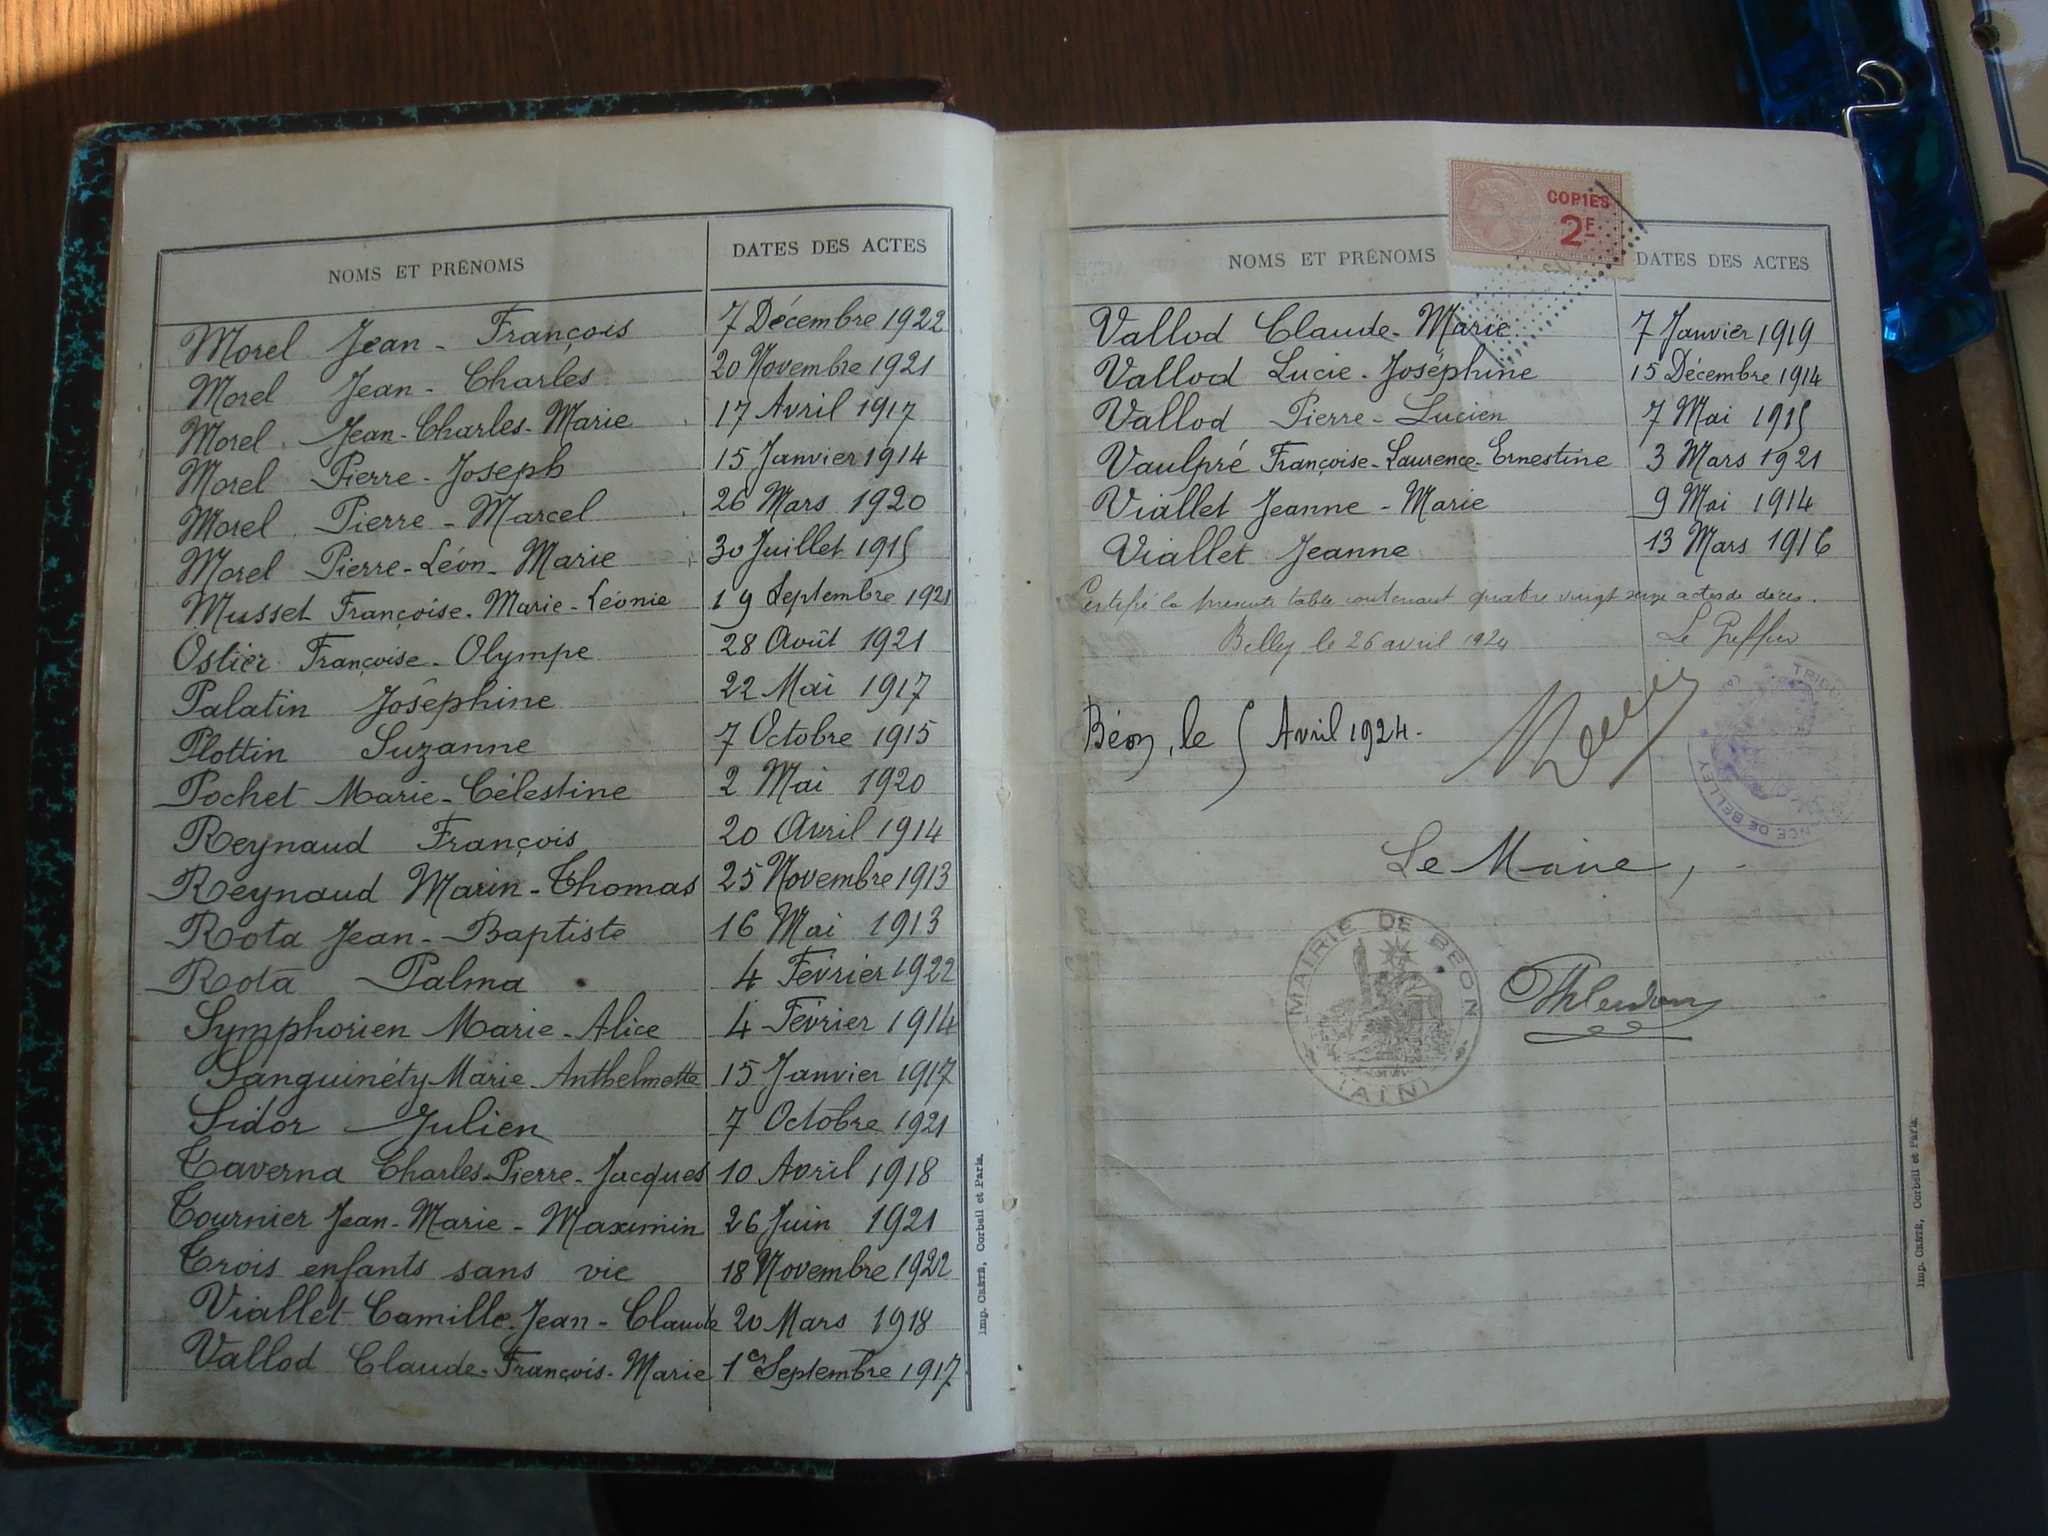 NOMS ET PRÉNOMS DATES DES ACTES
Morel Jean-François 7 Décembre 1922
Morel Jean-Charles 20 Novembre 1921
Morel Jean-Charles-Marie 17 Avril 1917
Morel Pierre-Joseph 15 Janvier 1914
Morel Pierre-Marcel 26 Mars 1920
Morel Pierre-Léon-Marie 30 Juillet 1915
Musset Françoise-Marie-Léonie 19 Septembre 1921
Ostier Françoise-Olympe 28 Août 1921
Palatin Joséphine 22 Mai 1917
Plottin Suzanne 7 Octobre 1915
Pochet Marie-Célestine 2 Mai 1920
Reynaud François 20 Avril 1914
Reynaud Marin-Thomas 25 Novembre 1913
Rota Jean-Baptiste 16 Mai 1913
Rota Palma 4 Février 1922
Symphorien Marie-Alice 4 Février 1914
Sanguinéty Marie-Anthelmette 15 Janvier 1917
Sidor Julien 7 Octobre 1921
Taverna Charles-Pierre-Jacques 10 Avril 1918
Tournier Jean-Marie-Maximin 26 Juin 1921
Trois enfants sans vie 18 Novembre 1922
Viallet Camille-Jean-Claude 20 Mars 1918
Vallod Claude-François-Marie 1er Septembre 1917
Imp. CRÉTÉ, Corbeil et Paris.
COPIES
2F
NOMS ET PRÉNOMS DATES DES ACTES
Vallod Claude-Marie 7 Janvier 1919
Vallod Lucie-Joséphine 15 Décembre 1914
Vallod Pierre-Lucien 7 Mai 1915
Vaulpré Françoise-Laurence-Ernestine 3 Mars 1921
Viallet Jeanne-Marie 9 Mai 1914
Viallet Jeanne 13 Mars 1916
Certifié la présente table contenant quatre vingt onze actes de décès.
Belley le 26 avril 1924 Le Greffier
Béon, le 5 Avril 1924.
BELLEY
Le Maire,
MAIRIE DE BÉON
(AIN)
Imp. CRÉTÉ, Corbeil et Paris.